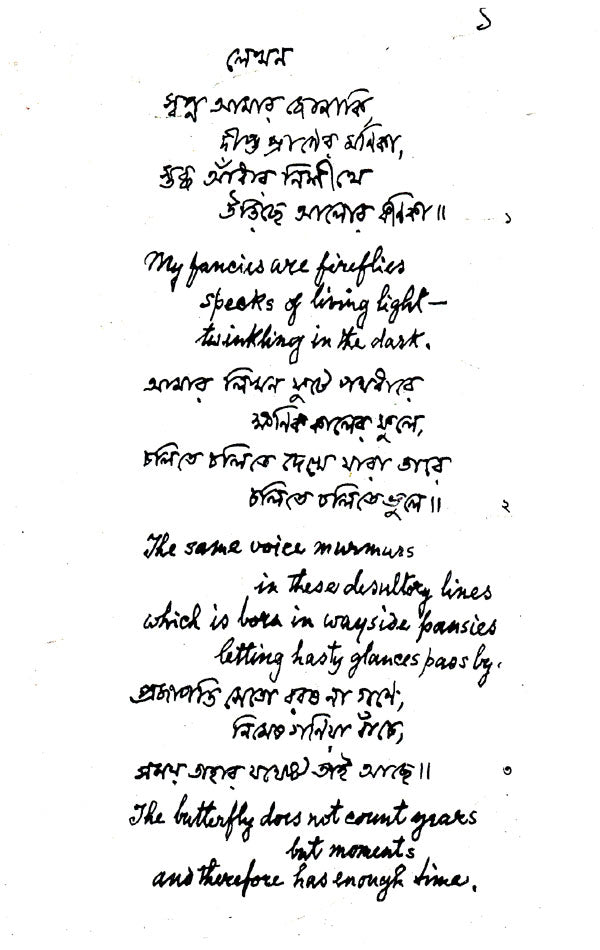 ১
লেখন
স্বপ্ন আমার জোনাকি,
দীপ্ত প্রাণের মণিকা,
স্তব্ধ আঁধার নিশীথে
উড়িছে আলোর কণিকা॥ ১
My fancies are fireflies
specks of living light —
twinkling in the dark.
আমার লিখন ফুটে পথধারে
ক্ষণিক কালের ফুলে,
চলিতে চলিতে দেখে যারা তারে
চলিতে চলিতে ভুলে॥ ২
The same voice murmurs
in these desultory lines
which is born in wayside pansies
letting hasty glances pass by.
প্রজাপতি সেতো বরষ না গণে,
নিমেষ গণিয়া বাঁচে,
সময় তাহার যথেষ্ট তাই আছে॥ ৩
The butterfly does not count years
but moments
and therefore has enough time.